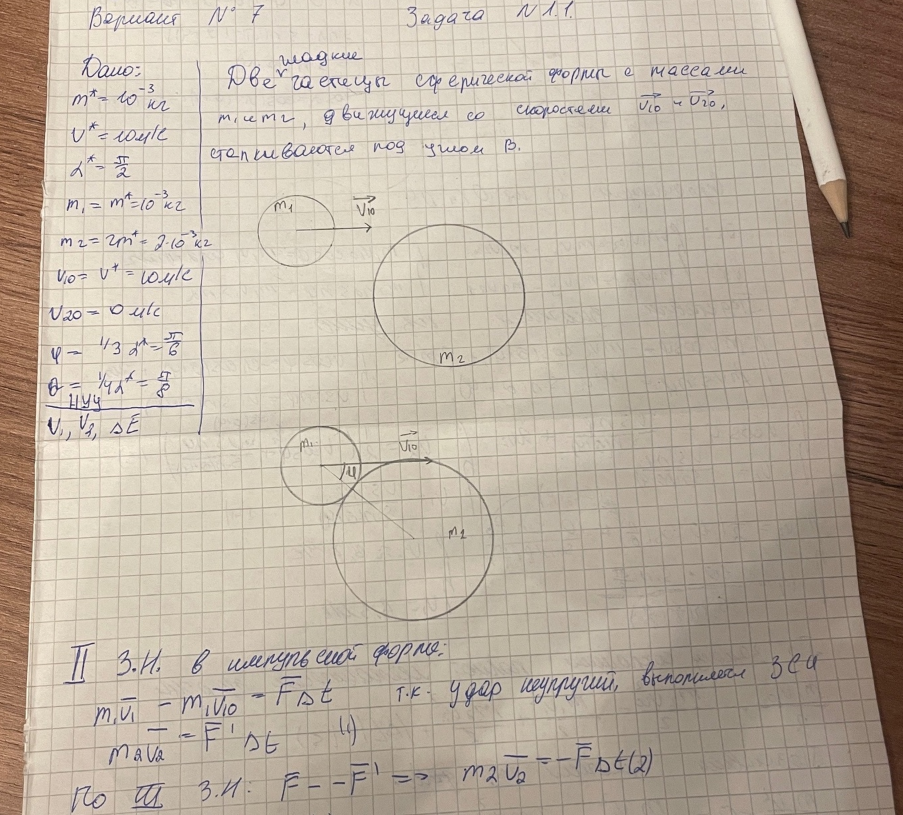 Вариант № 7 Задача № 1.1.
Дано:
m* = 10⁻³ кг
V* = 10 м/с
α* = π/2
m₁ = m* = 10⁻³ кг
m₂ = 2m* = 2·10⁻³ кг
V₁₀ = V* = 10 м/с
V₂₀ = 0 м/с
φ = 1/3 α* = π/6
θ = 1/4 α* = π/8
НУУ
V₁, V₂, ΔE
гладкие
Две частицы сферической формы с массами
m₁ и m₂, движущиеся со скоростями V₁₀ и V₂₀,
сталкиваются под углом β.
m₁
V₁₀
m₂
m₁
V₁₀
φ
m₂
II З.Н. в импульсной форме:
m₁V₁ − m₁V₁₀ = FΔt т.к. удар неупругий, выполняется ЗСИ
m₂V₂ = F'Δt (1)
По III З.Н: F = −F' => m₂V₂ = −FΔt (2)